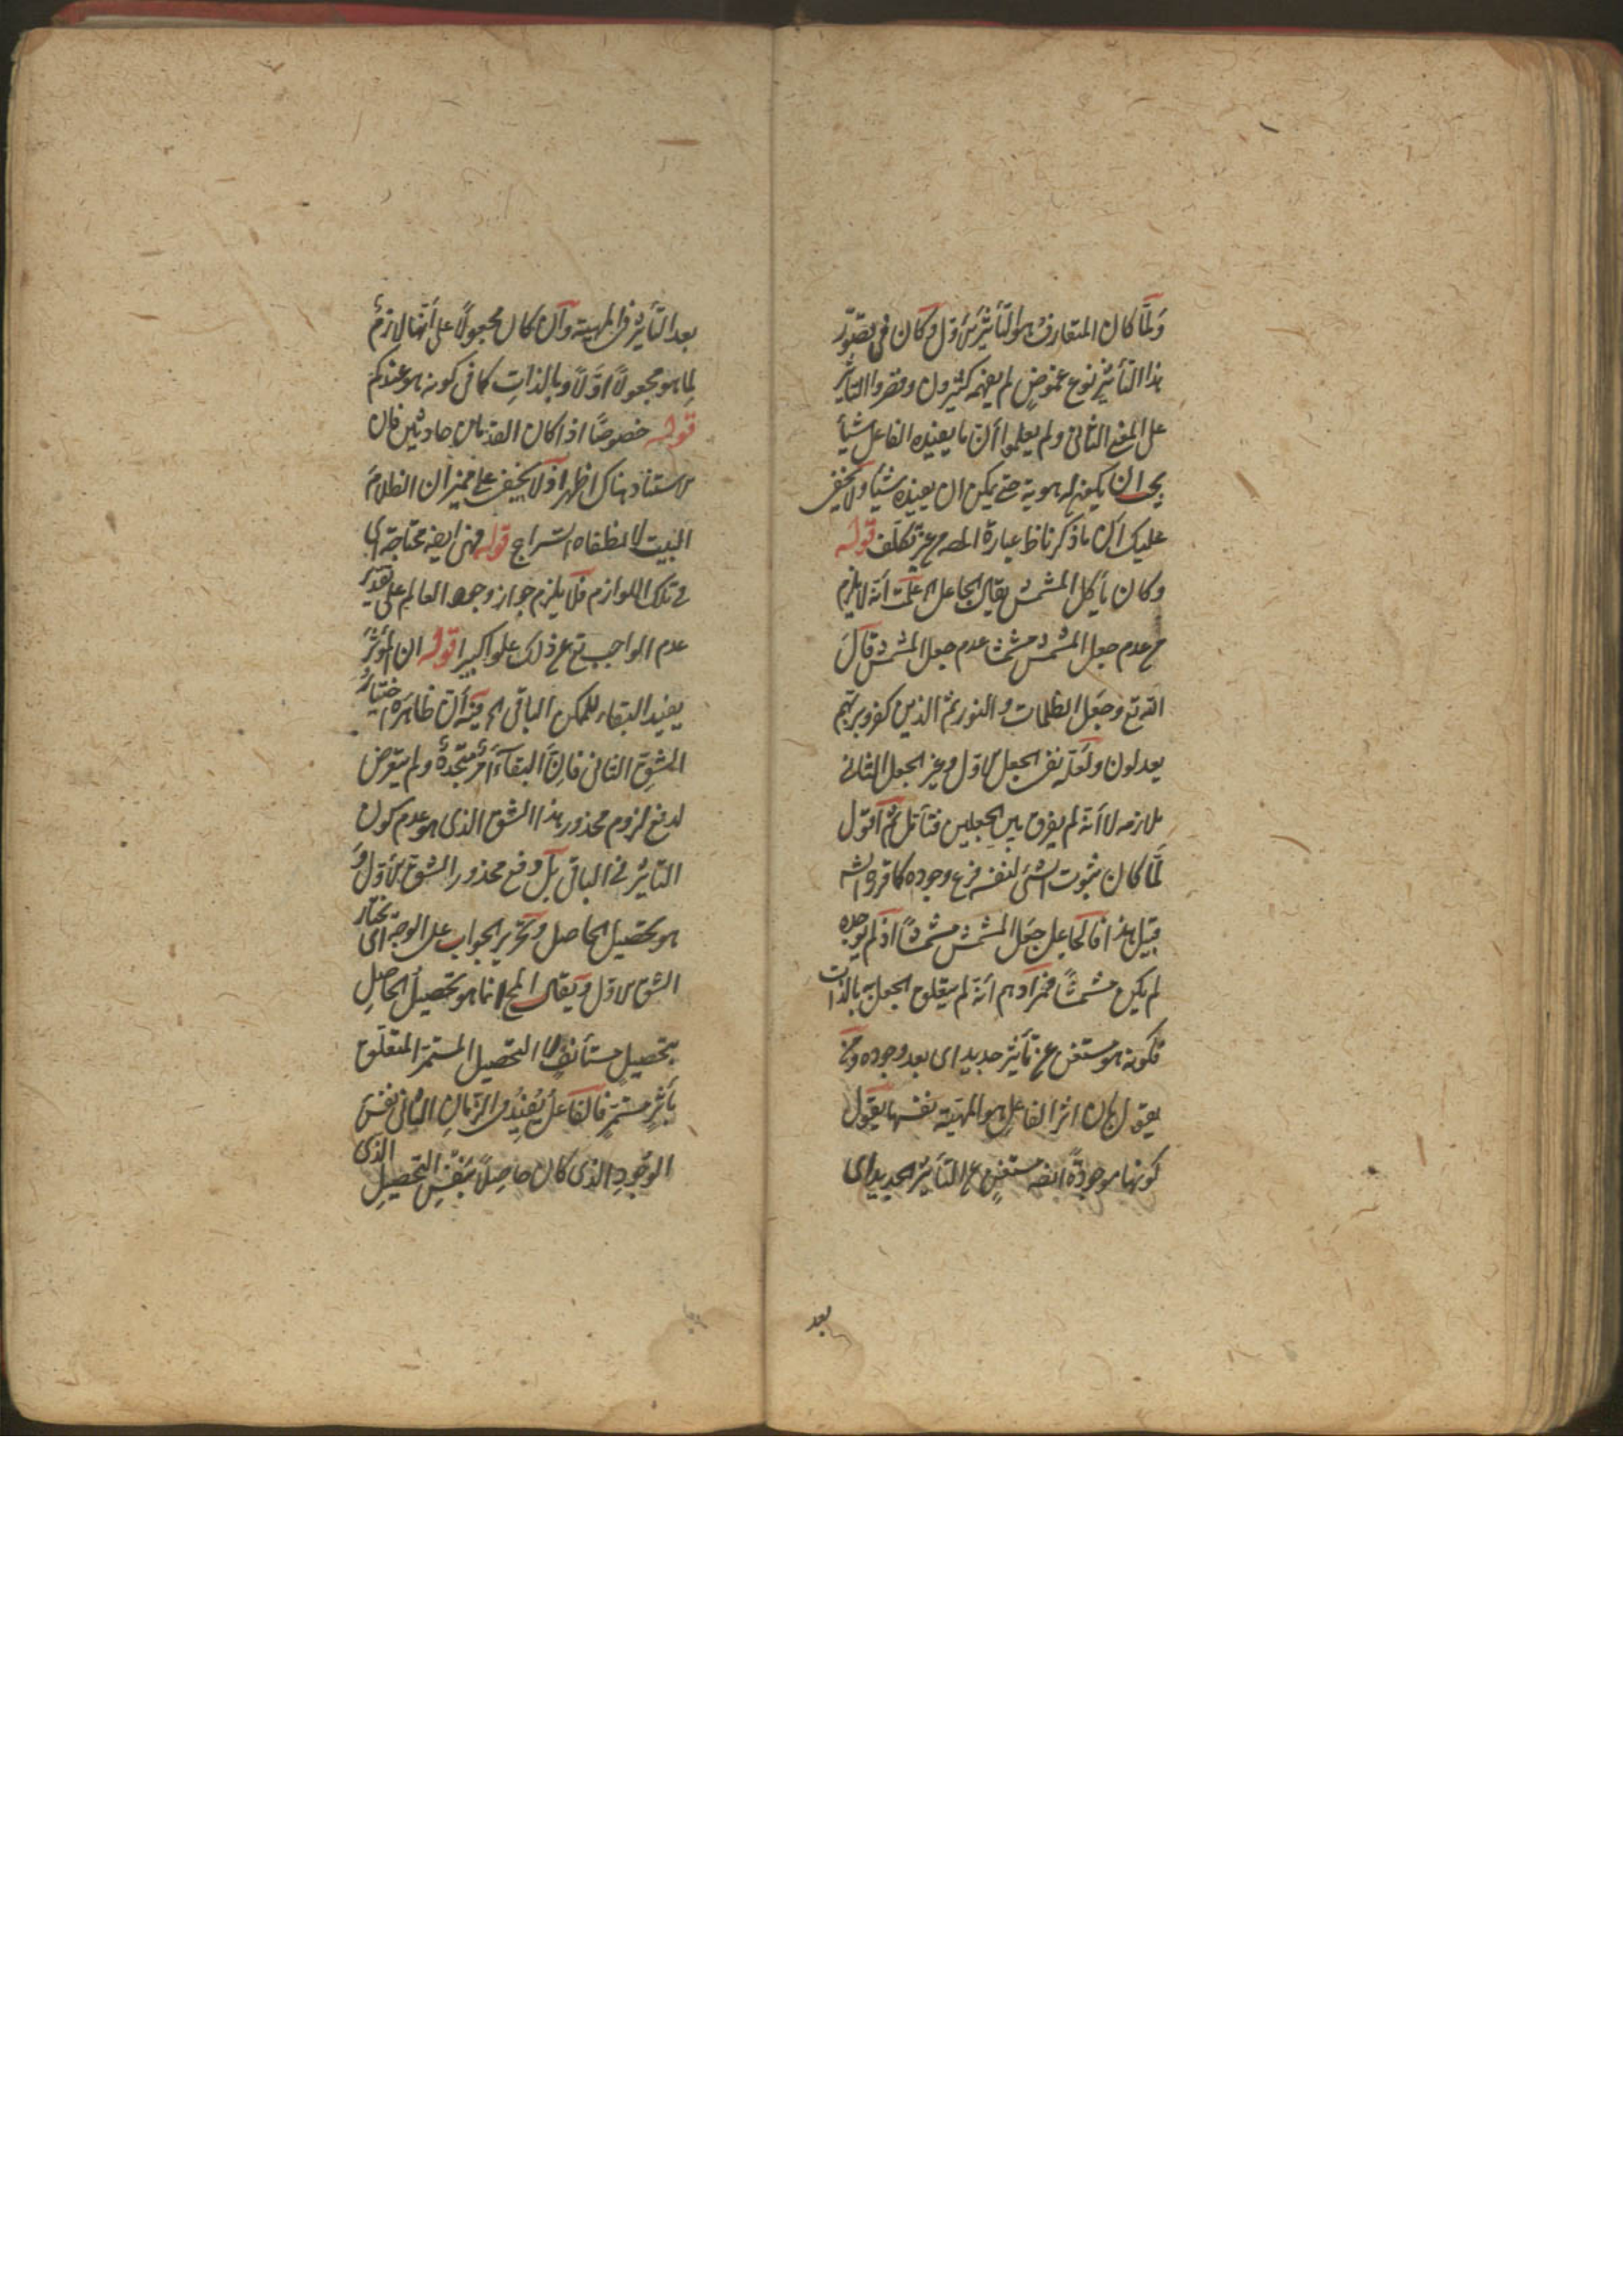 ولمّا كان المتعارف هو التأثير الاول وكان فى تصوّر
هذا التأثير نوع غموضٍ لم يفهمه كثيرون وقصروا التأثير
على المعنى الثانى ولم يعلموا أنّ ما يفيده الفاعل شيأ
يجب ان يكون له هوية حتى يمكن ان يفيده شيأ ولا يخفى
عليك انّ ما ذكرنا عبارة المص عن تكلف قوله
وكان يأكل المشمش يقال الجاعل الخ علمت أنه لا يلزم
من عدم جعل المشمش مشمشا عدم جعل المشمش قال
الله تع وجعل الظلمات والنور ثم الذين كفروا بربّهم
يعدلون ولعلّه نفى الجعل الاول وعن الجعل الثانى
ملازمه لا أنّه لم يفرق بين الجعلين فتأمل ثم اقول
لمّا كان ثبوت الشئ لنفسه فرع وجوده كما قر
قبيل هذا فالجاعل جعل المشمش مشمشاً اذ لم يوجده
لم يكن مشمشاً فمرادهم أنّه لم يتعلق الجعل به بالذات
فكونه هو مستغن عن تأثير جديد اى بعد وجوده ومن
يقول بان اثر الفاعل هو المهيّة نفسها يقول
كونها موجودةً ايضا مستغنٍ عن التأثير الجديد اى
بعد
بعد التأثير فى المهيته وان كان مجعولاً على أنّها لازمٌ
لما هو مجعولاً اوّلاً وبالذات كما فى كونه هو عندكم
قوله خصوصًا اذا كان العدمان حادثين فان
الاستناد هناك اظهر اذ لا يخفى على مميز ان الظلام
البيت لانطفاء السراج قوله فهى ايضا محتاجة الى
فى تلك اللوازم فلا يلزم جواز وجود العالم على تقدير
عدم الواجب تع عن ذلك علوا كبيرا قوله ان المؤثرَ
يفيد البقاء للممكن الباقى الخ فيه أنّ ظاهره اختيارُ
الشق الثانى فانّ البقآء أمرٌ متجددٌ ولم يتعرض
لدفع لزوم محذور هذا الشق الذى هو عدم كون
التاثير فى الباقى بل دفع محذور الشق الاوّل و
هو تحصيل الحاصل وتحرير الجواب على الوجه اى نختار
الشق الاول ويقال المح انما هو تحصيل الحاصِل
بتحصيل مستأنفٍ لا التحصيل المستمر المتعلق
بأثرٍ مستمرٍ فالفاعل يُفيدُ فى الزمان الثانى نفسَ
الوجودِ الذى كان حاصِلاً بنفسِ التحصيلِ الذى